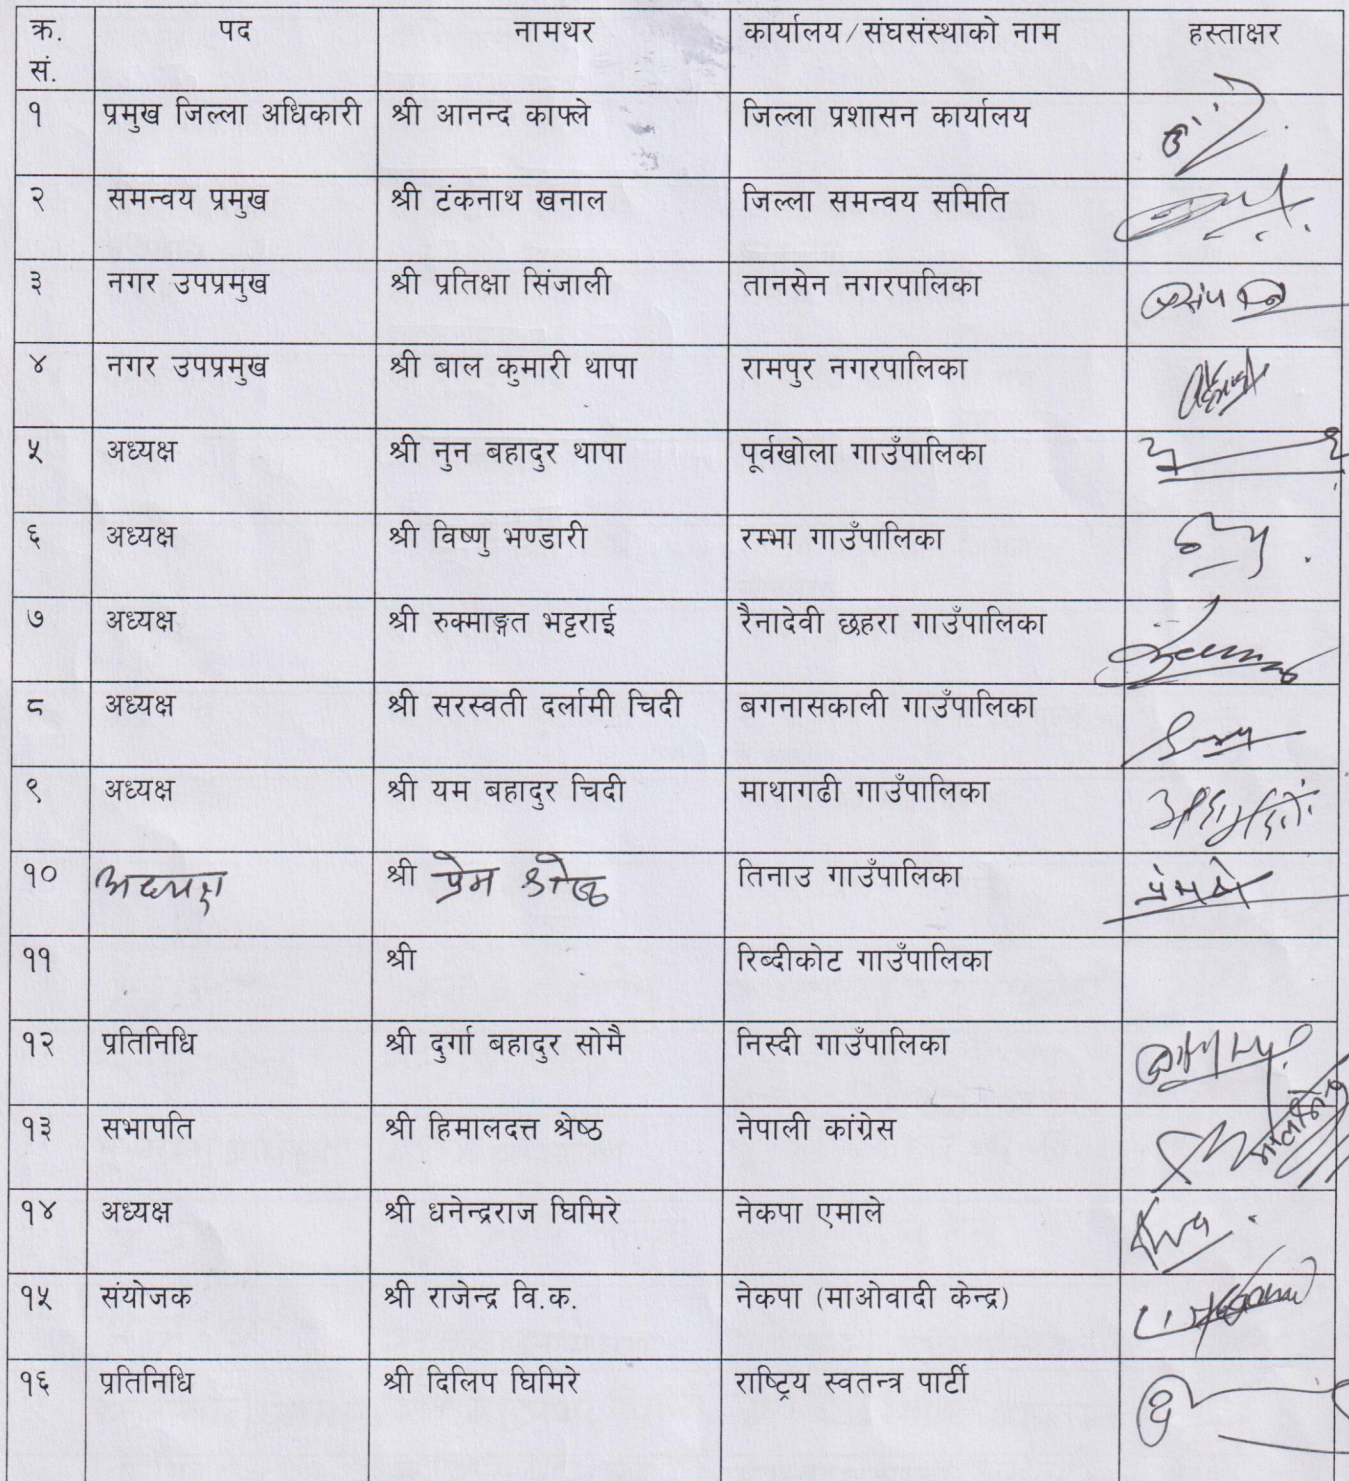 क्र. सं. पद नामथर कार्यालय/संघसंस्थाको नाम हस्ताक्षर
१ प्रमुख जिल्ला अधिकारी श्री आनन्द काफ्ले जिल्ला प्रशासन कार्यालय
२ समन्वय प्रमुख श्री टंकनाथ खनाल जिल्ला समन्वय समिति
३ नगर उपप्रमुख श्री प्रतिक्षा सिंजाली तानसेन नगरपालिका
४ नगर उपप्रमुख श्री बाल कुमारी थापा रामपुर नगरपालिका
५ अध्यक्ष श्री नुन बहादुर थापा पूर्वखोला गाउँपालिका
६ अध्यक्ष श्री विष्णु भण्डारी रम्भा गाउँपालिका
७ अध्यक्ष श्री रुक्माङ्गत भट्टराई रैनादेवी छहरा गाउँपालिका
८ अध्यक्ष श्री सरस्वती दर्लामी चिदी बगनासकाली गाउँपालिका
९ अध्यक्ष श्री यम बहादुर चिदी माथागढी गाउँपालिका
१० अध्यक्ष श्री प्रेम श्रेष्ठ तिनाउ गाउँपालिका
११ श्री रिब्दीकोट गाउँपालिका
१२ प्रतिनिधि श्री दुर्गा बहादुर सोमै निस्दी गाउँपालिका
१३ सभापति श्री हिमालदत्त श्रेष्ठ नेपाली कांग्रेस
१४ अध्यक्ष श्री धनेन्द्रराज घिमिरे नेकपा एमाले
१५ संयोजक श्री राजेन्द्र वि.क. नेकपा (माओवादी केन्द्र)
१६ प्रतिनिधि श्री दिलिप घिमिरे राष्ट्रिय स्वतन्त्र पार्टी